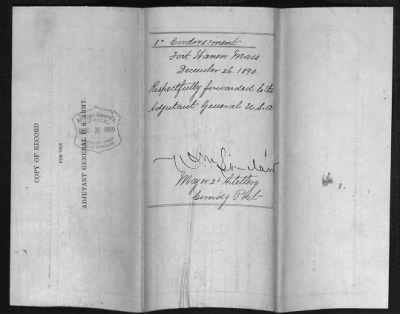 1st Endorsement
Fort Warren Mass
December 26. 1890.
Respectfully forwarded to the
Adjutant General U.S.A
Wm Sinclair
Major 2d Artillery
Comd'g Post
COPY OF RECORD
FOR THE
ADJUTANT GENERAL U.S. ARMY.